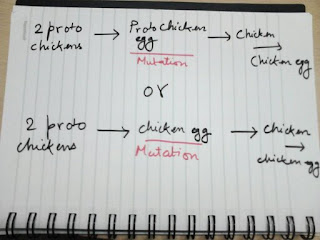 2 proto chickens → Proto chicken egg → Chicken → Chicken egg
Mutation
OR
2 proto chickens → chicken egg → Chicken → chicken egg
Mutation